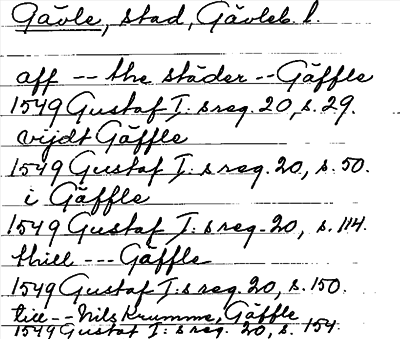 Gävle, stad, Gävleb. l.
aff -- the städer -- Gäffle
1549 Gustaf I:s reg. 20, s. 29.
vijdt Gäffle
1549 Gustaf I:s reg. 20, s. 50.
i Gäffle
1549 Gustaf I:s reg. 20, s. 114.
thill --- Gäffle
1549 Gustaf I:s reg. 20, s. 150.
till -- Nils Krumme, Gäffle
1549 Gustaf I:s reg. 20, s. 154.